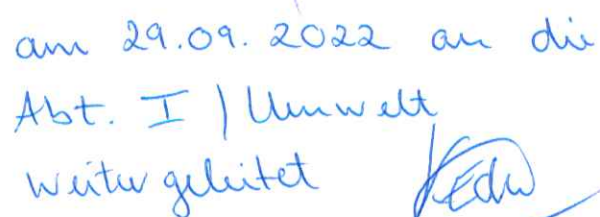 am 29.09.2022 an die
Abt. I / Umwelt
weitergeleitet